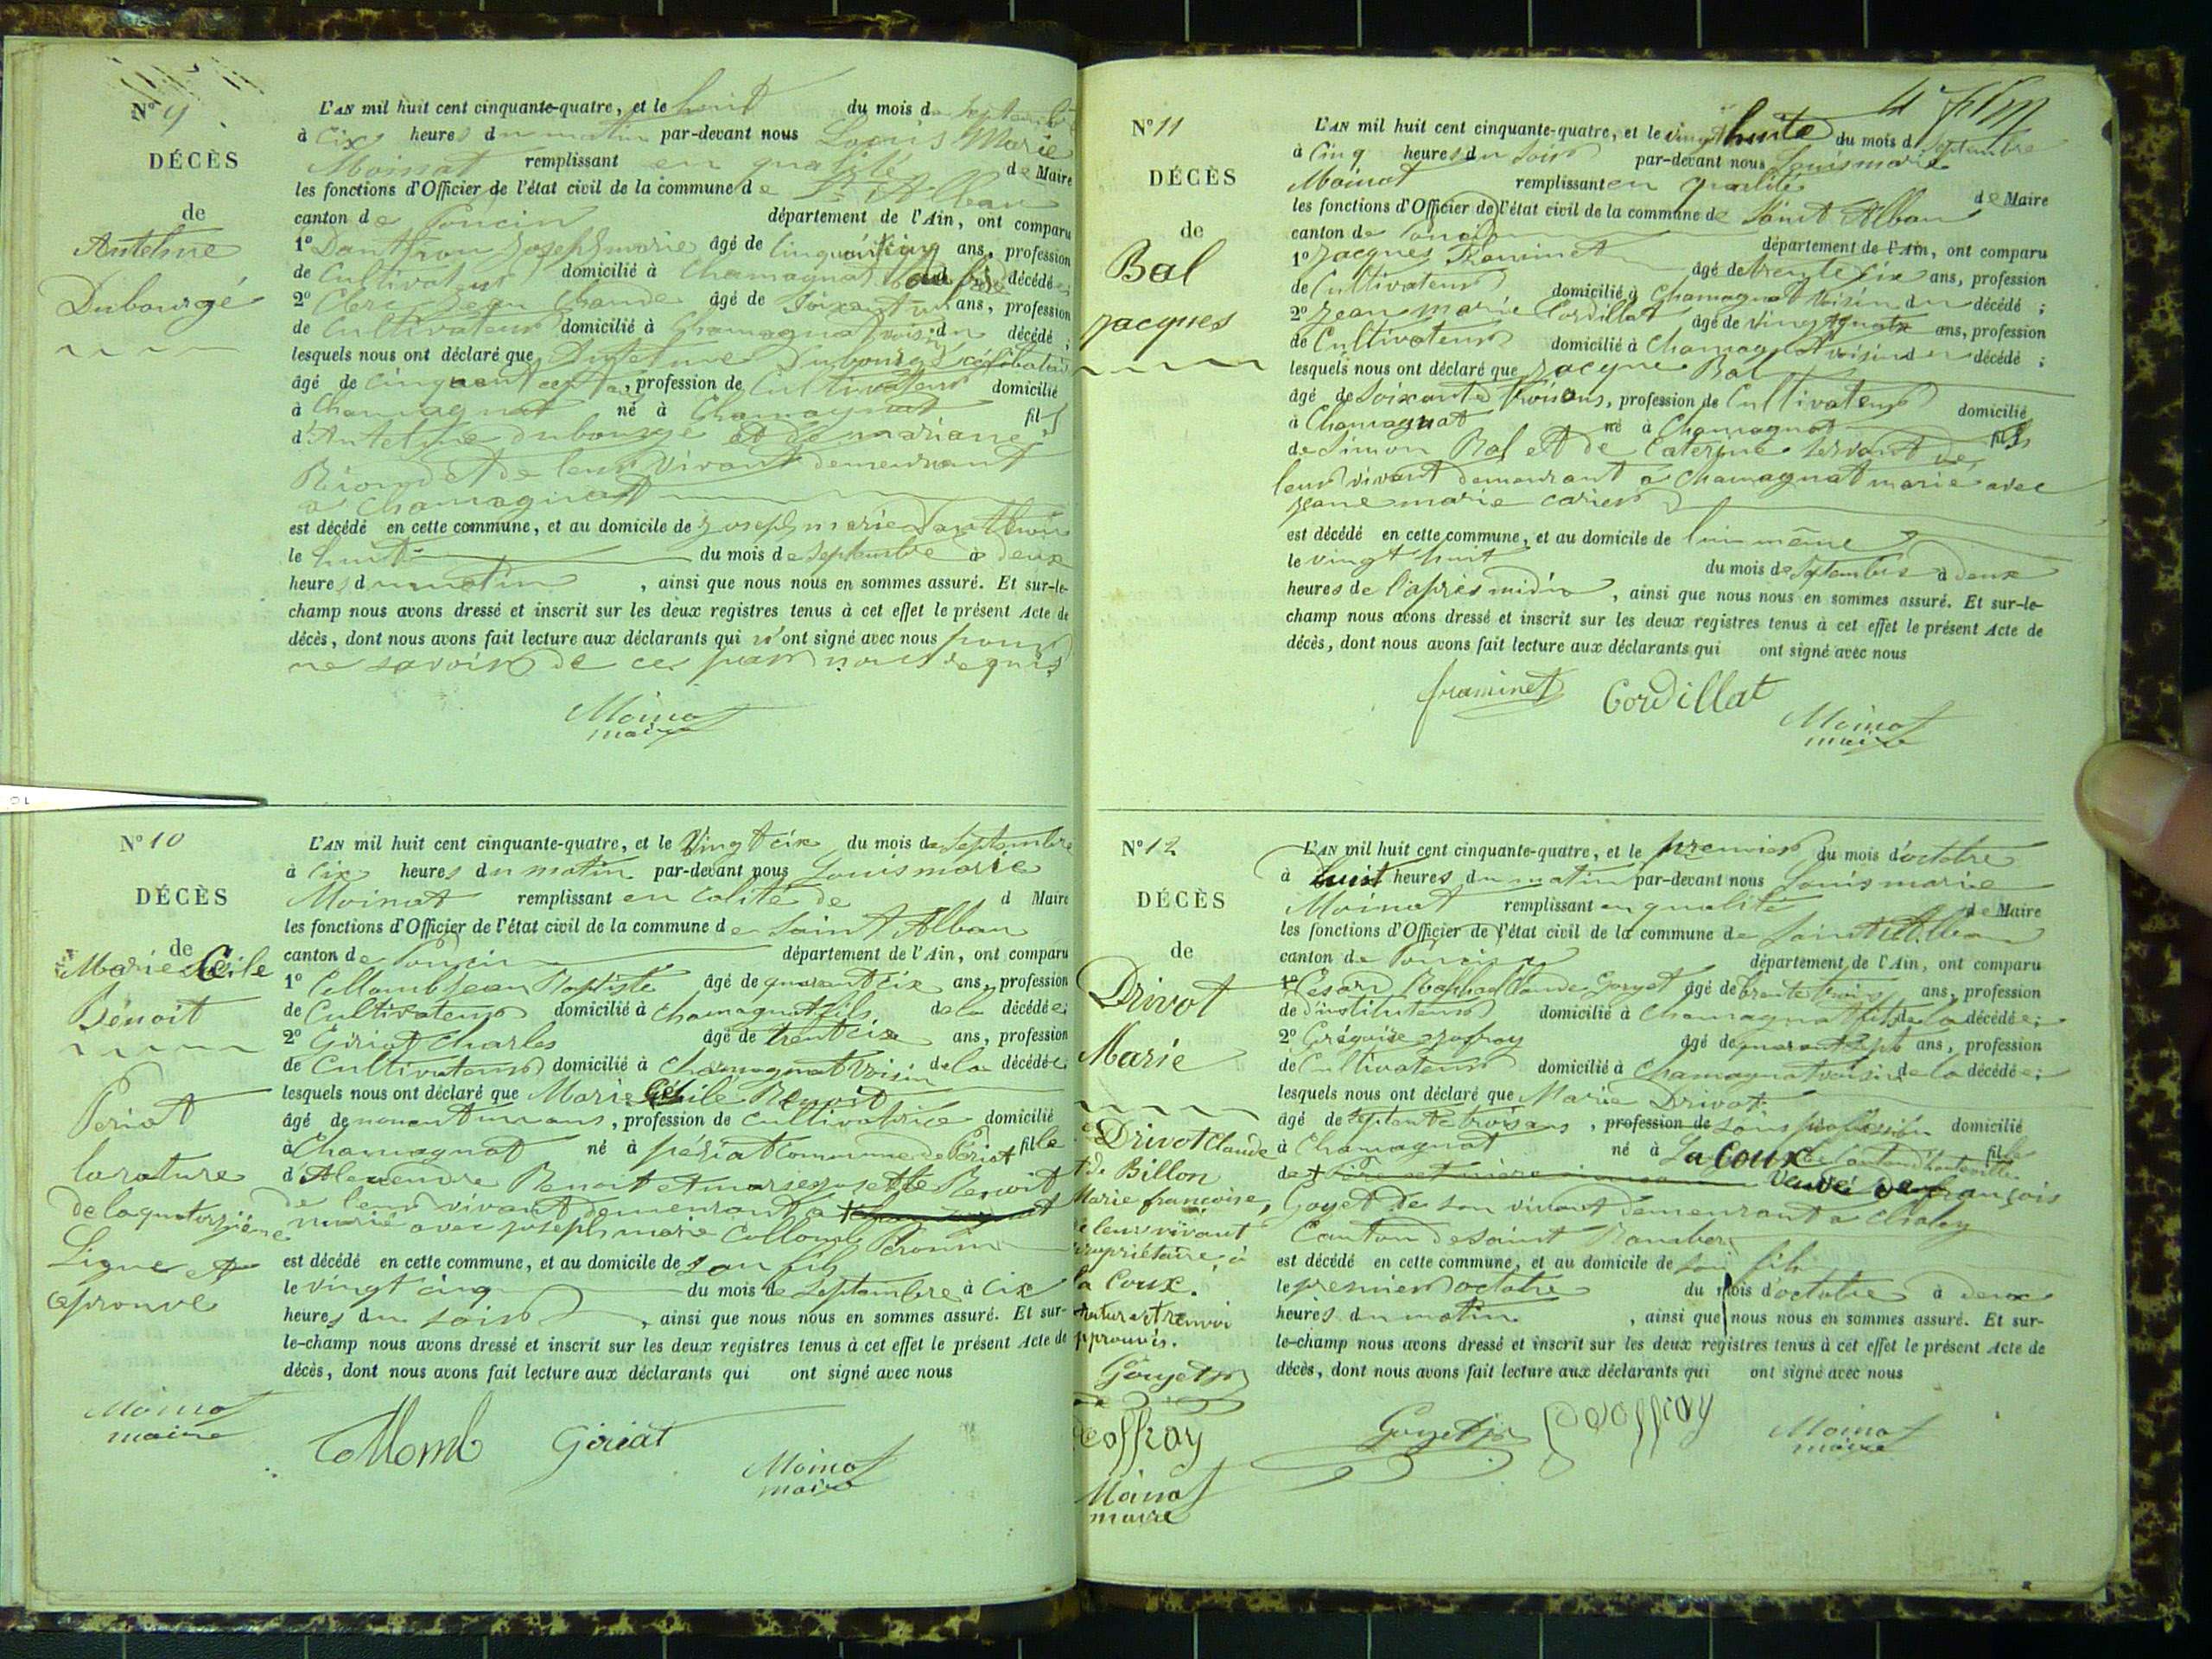 N° 9
DÉCÈS
de
Antelme
Dubourgé
L'AN mil huit cent cinquante-quatre, et le huit du mois de septembre
à cix heures du matin par-devant nous Louis Marie
Moinat remplissant en qualité de Maire
les fonctions d'Officier de l'état civil de la commune de St Alban
canton de Poncin département de l'Ain, ont comparu
1° joseph marie âgé de cinquante ans, profession
de Cultivateur domicilié à Chamagnat décédé;
2° Clerc Jean Claude âgé de Soixant un ans, profession
de Cultivateur domicilié à Chamagnat voisin du décédé;
lesquels nous ont déclaré que Antelme Dubourgé célibataire
âgé de cinquant ans, profession de Cultivateur domicilié
à Chamagnat né à Chamagnat fils
d'Antelme dubourgé et de mariane
Riondet de leur vivant demeurant
a Chamagnat
est décédé en cette commune, et au domicile de joseph marie
le huit du mois de septembre à deux
heures du matin, ainsi que nous nous en sommes assuré. Et sur-le-
champ nous avons dressé et inscrit sur les deux registres tenus à cet effet le présent Acte de
décès, dont nous avons fait lecture aux déclarants qui n'ont signé avec nous pour
ne savoir de ce par nous requis
Moinat
maire
N° 10
DÉCÈS
de
Marie Cécile
Bénoit
Periat
la rature
de la quatorzième
Ligne et
aprouve
Moinat
maire
L'AN mil huit cent cinquante-quatre, et le Vingt cix du mois de Septembre
à cix heures du matin par-devant nous Louis marie
Moinat remplissant en calité de d Maire
les fonctions d'Officier de l'état civil de la commune de Saint Alban
canton de Poncin département de l'Ain, ont comparu
1° Collomb Jean Baptiste âgé de quarant cix ans, profession
de Cultivateur domicilié à Chamagnat fils de la décédée;
2° Giriat Charles âgé de trent cix ans, profession
de Cultivateur domicilié à Chamagnat Voisin de la décédée;
lesquels nous ont déclaré que Marie Cécile Benoit
âgé de nonant un ans, profession de Cultivatrice domicilié
à Chamagnat né à périat Commune de Périat fille
d'Alexendre Benoit et marie josette Benoit
de leur vivant demeurant a
marié avec joseph marie Collomb
est décédé en cette commune, et au domicile de son fils
le vingt cinq du mois de Septembre à cix
heures du soir, ainsi que nous nous en sommes assuré. Et sur-
le-champ nous avons dressé et inscrit sur les deux registres tenus à cet effet le présent Acte de
décès, dont nous avons fait lecture aux déclarants qui ont signé avec nous
Collomb Giriat
Moinat
maire
N° 11
DÉCÈS
de
Bal
jacques
L'AN mil huit cent cinquante-quatre, et le vingt huite du mois d Septembre
à Cinq heures du soir par-devant nous Louis marie
Moinat remplissant en qualité de Maire
les fonctions d'Officier de l'état civil de la commune de Saint Alban
canton de Poncin département de l'Ain, ont comparu
1° Jacques Framinet âgé de trente six ans, profession
de Cultivateur domicilié à Chamagnat Voisin du décédé;
2° Jean marie Cordillat âgé de vingt quatre ans, profession
de Cultivateur domicilié à Chamagnat voisin du décédé;
lesquels nous ont déclaré que Jacque Bal
âgé de Soixante trois ans, profession de Cultivateur domicilié
à Chamagnat né à Chamagnat fils
de Simon Bal et de Caterine Servant de
leur vivant demeurant a Chamagnat marié avec
jeane marie
est décédé en cette commune, et au domicile de lui même
le vingt huit du mois de Septembre à deux
heures de l'après midi, ainsi que nous nous en sommes assuré. Et sur-le-
champ nous avons dressé et inscrit sur les deux registres tenus à cet effet le présent Acte de
décès, dont nous avons fait lecture aux déclarants qui ont signé avec nous
framinet Cordillat
Moinat
maire
N° 12
DÉCÈS
de
Drivot
Marie
Drivot Claude
et de Billon
Marie françoise,
de leur vivant
propriétaire, à
la Coux.
rature et renvoi
approuvés.
Goyet
Geoffray
Moinat
maire
L'AN mil huit cent cinquante-quatre, et le premier du mois d'octobre
à huit heures du matin par-devant nous Louis marie
Moinat remplissant en qualité de Maire
les fonctions d'Officier de l'état civil de la commune de Saint Alban
canton de Poncin département de l'Ain, ont comparu
1° César Raphael Claude Goyet âgé de trente trois ans, profession
de d'instituteur domicilié à Chamagnat fils de la décédée;
2° Grégoire Jofray âgé de quarant Sept ans, profession
de Cultivateur domicilié à Chamagnat voisin de la décédée;
lesquels nous ont déclaré que Marie Drivot
âgé de septante trois ans, profession de sans profession domicilié
à Chamagnat né à La Coux Canton d'hauteville fille
de père et mère Veuve de françois
Goyet de son vivant demeurant a Chaley
Canton de Saint Rambert
est décédé en cette commune, et au domicile de son fils
le premier octobre du mois d'octobre à deux
heures du matin, ainsi que nous nous en sommes assuré. Et sur-
le-champ nous avons dressé et inscrit sur les deux registres tenus à cet effet le présent Acte de
décès, dont nous avons fait lecture aux déclarants qui ont signé avec nous
Goyet Geoffray
Moinat
maire